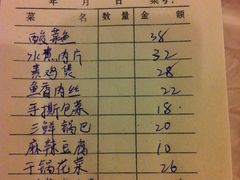 年 月 日 桌号:
菜 名 数量 金 额
酸菜鱼 38
水煮肉片 32
蒸鸡煲 28
鱼香肉丝 22
手撕包菜 18
三鲜锅巴 20
麻辣豆腐 10
干锅花菜 26